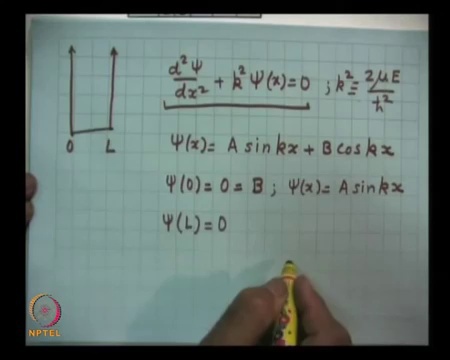 d²Ψ/dx² + k²Ψ(x)=0 ; k² = 2μE/ħ²
Ψ(x)= A sin kx + B cos kx
Ψ(0)= 0 = B ; Ψ(x)= A sin kx
Ψ(L)= 0
0 L
NPTEL